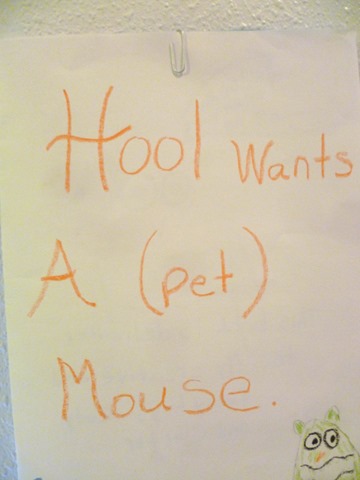 Hool Wants
A (pet)
Mouse.